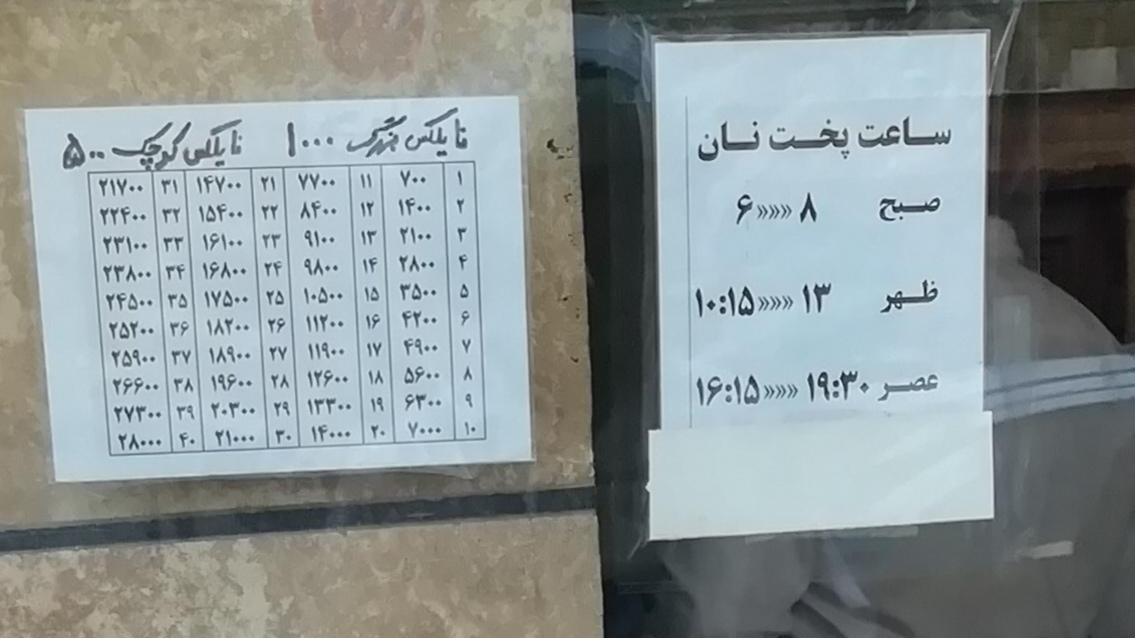 نایلکس بزرگ ۱۰۰۰ نایلکس کوچک ۵۰۰
۱ ۷۰۰ ۱۱ ۷۷۰۰ ۲۱ ۱۴۷۰۰ ۳۱ ۲۱۷۰۰
۲ ۱۴۰۰ ۱۲ ۸۴۰۰ ۲۲ ۱۵۴۰۰ ۳۲ ۲۲۴۰۰
۳ ۲۱۰۰ ۱۳ ۹۱۰۰ ۲۳ ۱۶۱۰۰ ۳۳ ۲۳۱۰۰
۴ ۲۸۰۰ ۱۴ ۹۸۰۰ ۲۴ ۱۶۸۰۰ ۳۴ ۲۳۸۰۰
۵ ۳۵۰۰ ۱۵ ۱۰۵۰۰ ۲۵ ۱۷۵۰۰ ۳۵ ۲۴۵۰۰
۶ ۴۲۰۰ ۱۶ ۱۱۲۰۰ ۲۶ ۱۸۲۰۰ ۳۶ ۲۵۲۰۰
۷ ۴۹۰۰ ۱۷ ۱۱۹۰۰ ۲۷ ۱۸۹۰۰ ۳۷ ۲۵۹۰۰
۸ ۵۶۰۰ ۱۸ ۱۲۶۰۰ ۲۸ ۱۹۶۰۰ ۳۸ ۲۶۶۰۰
۹ ۶۳۰۰ ۱۹ ۱۳۳۰۰ ۲۹ ۲۰۳۰۰ ۳۹ ۲۷۳۰۰
۱۰ ۷۰۰۰ ۲۰ ۱۴۰۰۰ ۳۰ ۲۱۰۰۰ ۴۰ ۲۸۰۰۰
ساعت پخت نان
صبح ۸ »»»» ۶
ظهر ۱۳ »»»» ۱۰:۱۵
عصر ۱۹:۳۰ »»»» ۱۶:۱۵